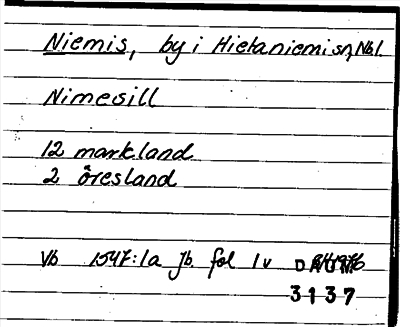 Niemis, by i Hietaniemi sn, Nbl.
Nimesill
12 markland
2 öresland
Vb 1547:1a jb. fol 1v
3137